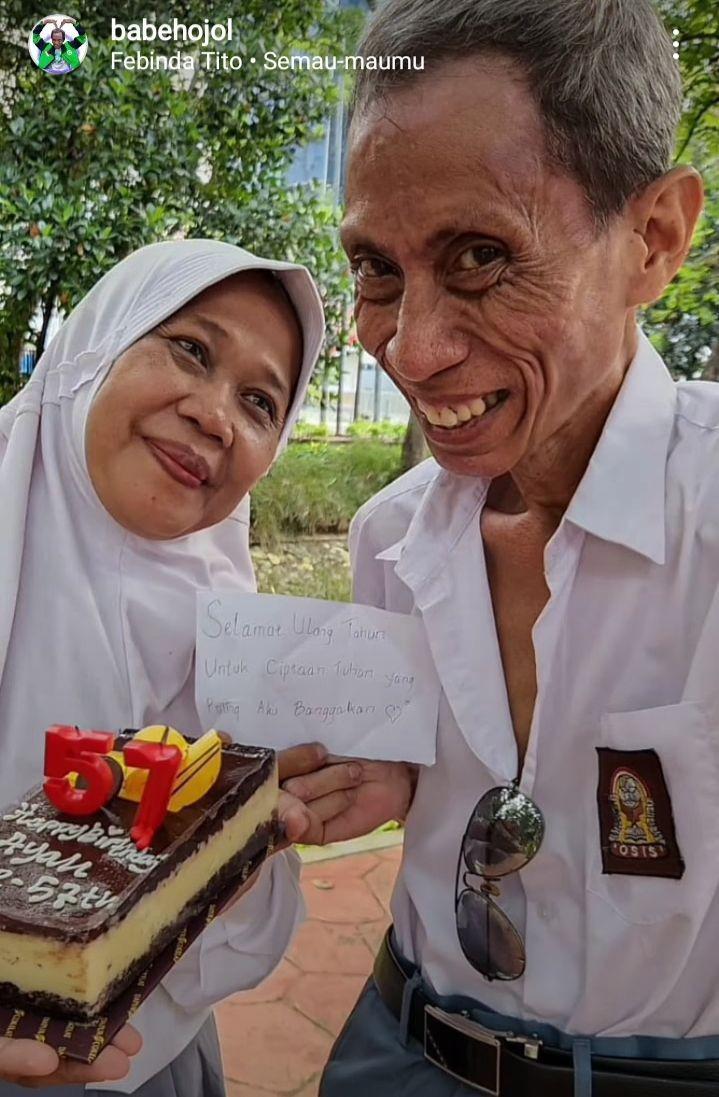 babehojol
Febinda Tito • Semau-maumu
Selamat Ulang Tahun
Untuk Ciptaan Tuhan yang
Paling Aku Banggakan
57
Happy Birthday
Ayah
57th
OSIS